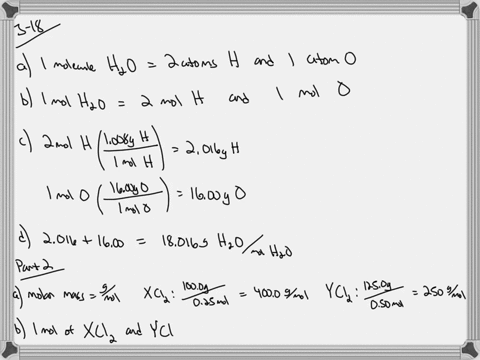 3-18
a) 1 molecule H₂O = 2 atoms H and 1 atom O
b) 1 mol H₂O = 2 mol H and 1 mol O
c) 2 mol H (1.008g H / 1 mol H) = 2.016g H
1 mol O (16.00g O / 1 mol O) = 16.00g O
d) 2.016 + 16.00 = 18.016g H₂O/mol H₂O
Part 2
a) molar mass = g/mol XCl₂: 100.0g/0.25mol = 400.0 g/mol YCl₂: 125.0g/0.50mol = 250 g/mol
b) 1 mol of XCl₂ and YCl